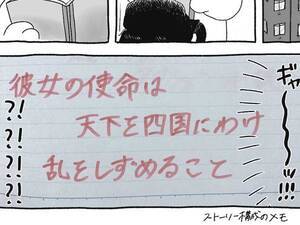 彼女の使命は
天下を四国にわけ
乱をしずめること
?!
?!
?!
?!
ギャー
!
!
!
!
ストーリー構成のメモ